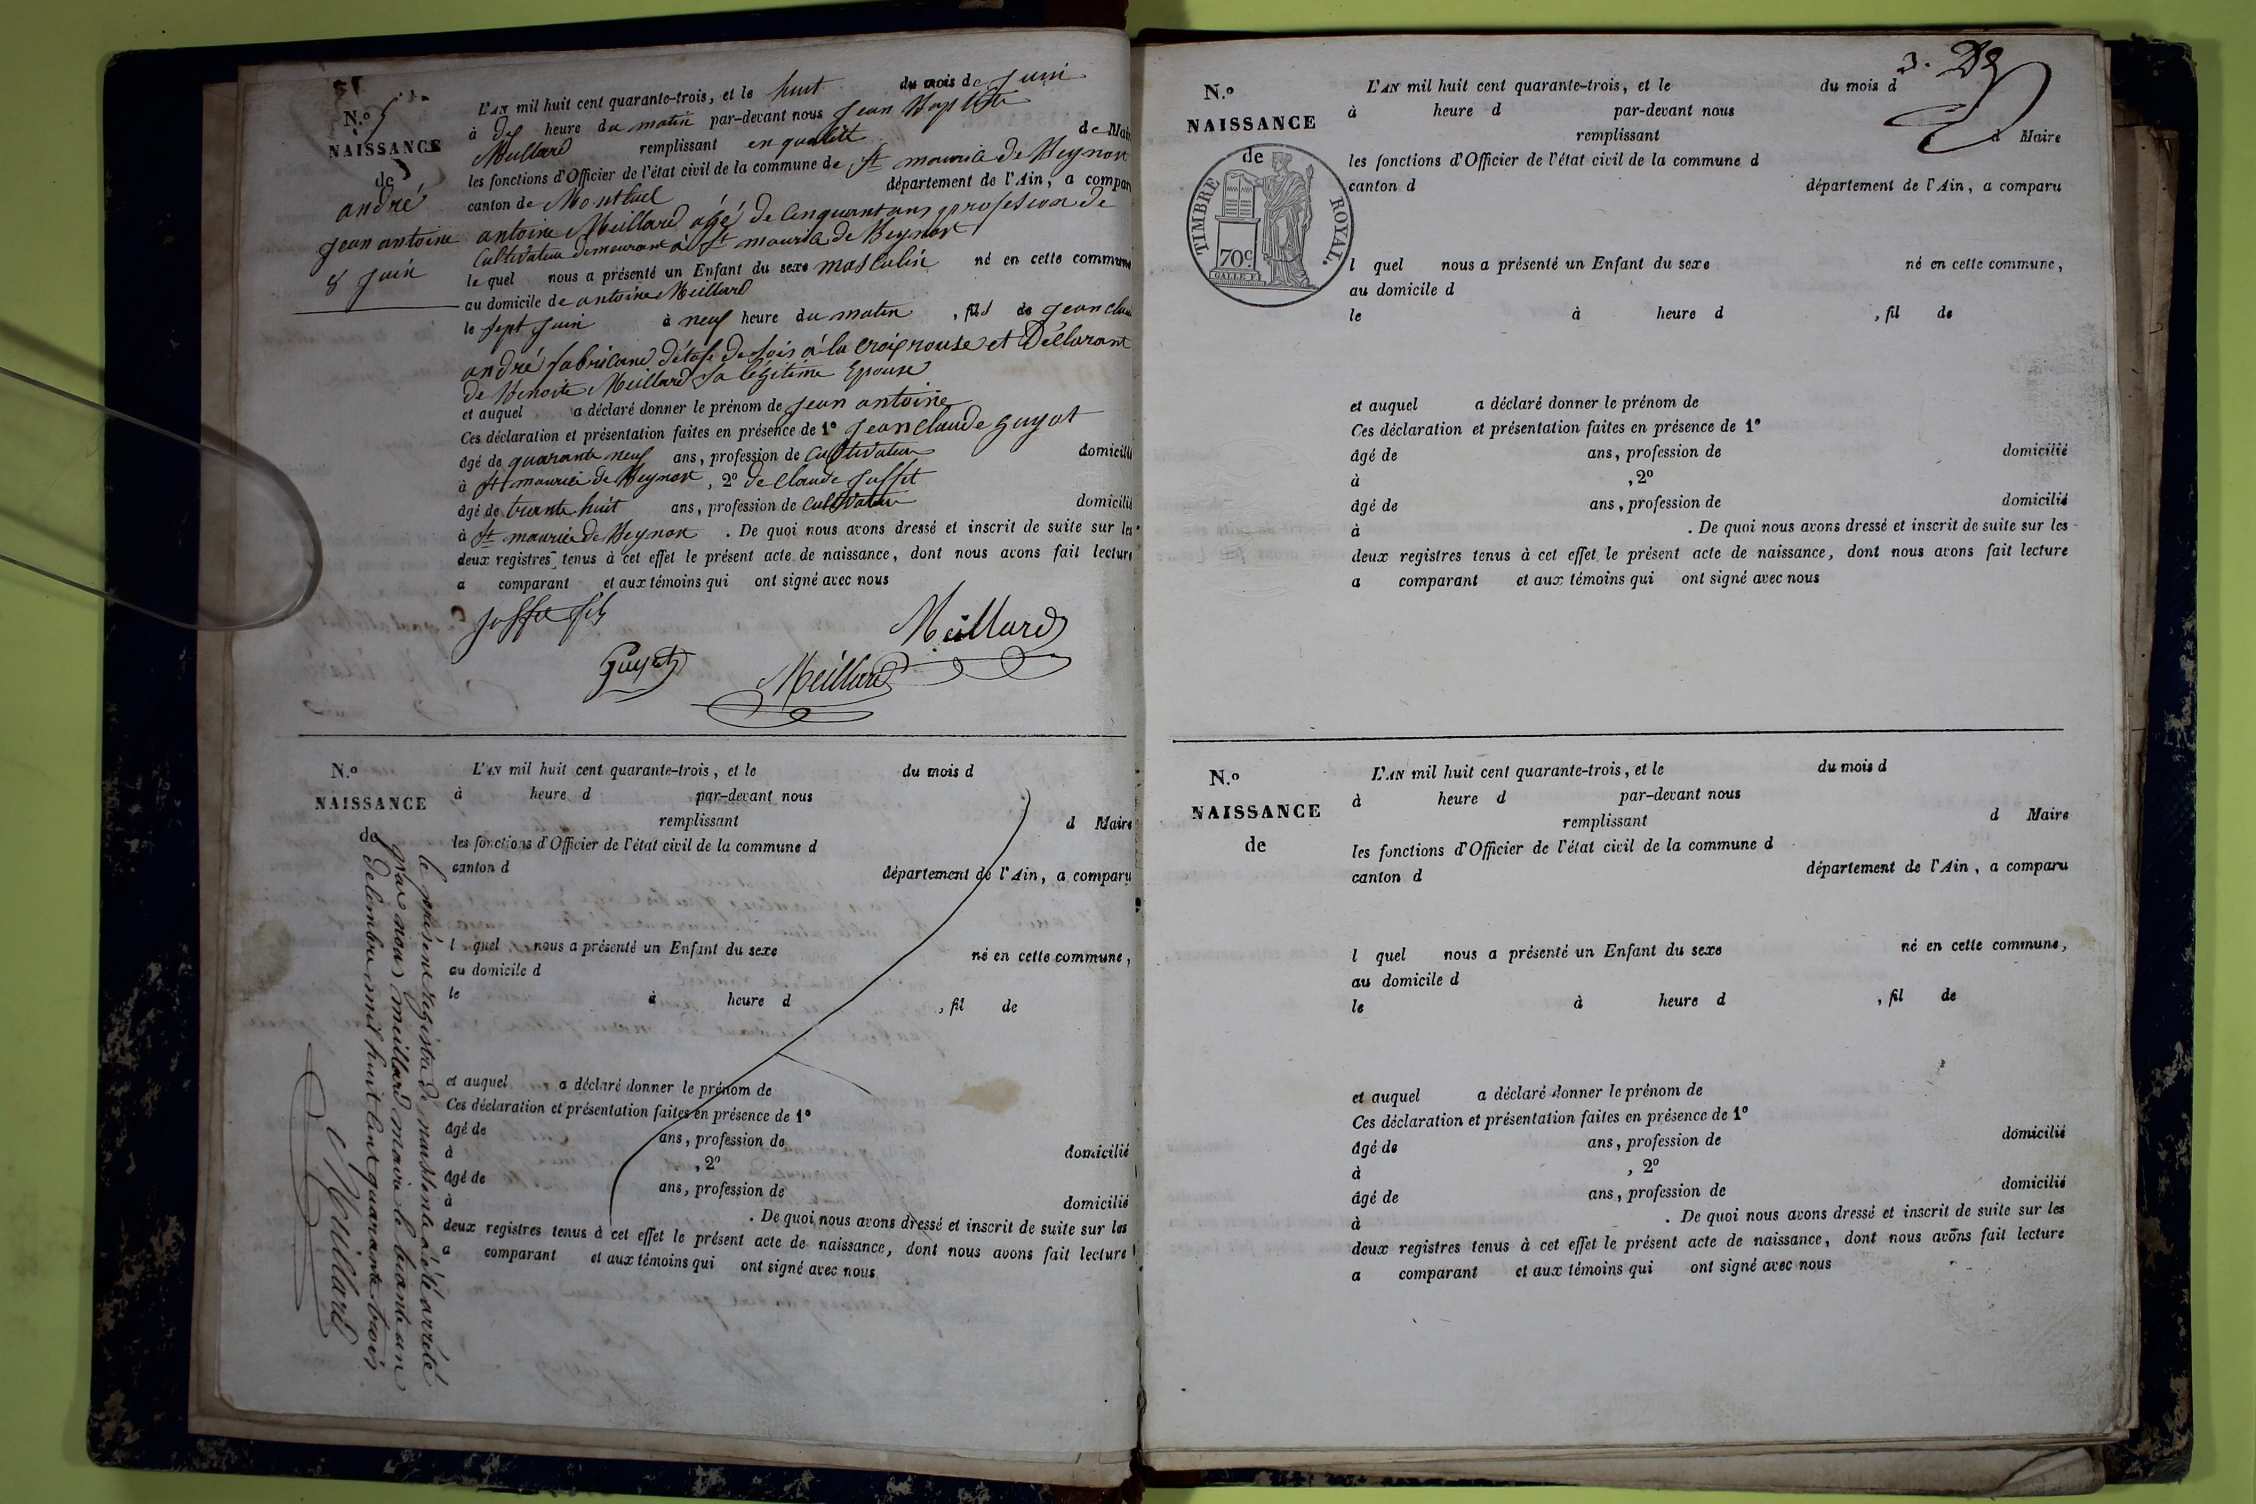 N.º 5
NAISSANCE
de
andré
jean antoine
8 juin
L'AN mil huit cent quarante-trois, et le huit du mois de juin
à dix heure du matin par-devant nous jean Baptiste
Meillard remplissant en qualité de Mair
les fonctions d'Officier de l'état civil de la commune de St maurice de Beynost
canton de Montluel département de l'Ain, a compar
antoine Meillard agé de Cinquant ans profession de
Cultivateur demeurant à St maurice de Beynost
le quel nous a présenté un Enfant du sexe masculin né en cette commune
au domicile de antoine Meillard
le sept juin à neuf heure du matin , fils de jean clau
andré fabricant d'étofe de soie à la croix rousse et Déclarant
de Benoite Meillard sa légitime Epouse
et auquel a déclaré donner le prénom de jean antoine
Ces déclaration et présentation faites en présence de 1º jean claude guyot
âgé de quarante neuf ans, profession de Cultivateur domicilié
à St maurice de Beynost , 2º de Claude Juffet
âgé de trente huit ans, profession de Cultivateur domicilié
à St maurice de Beynost . De quoi nous avons dressé et inscrit de suite sur les
deux registres tenus à cet effet le présent acte de naissance, dont nous avons fait lecture
a comparant et aux témoins qui ont signé avec nous
Juffet fils
Meillard
Guyot
Meillard
N.º
NAISSANCE
de
L'AN mil huit cent quarante-trois, et le du mois d
à heure d par-devant nous
remplissant d Maire
les fonctions d'Officier de l'état civil de la commune d
canton d département de l'Ain, a comparu
l quel nous a présenté un Enfant du sexe né en cette commune,
au domicile d
le à heure d , fil de
et auquel a déclaré donner le prénom de
Ces déclaration et présentation faites en présence de 1º
âgé de ans, profession de domicilié
à , 2º
âgé de ans, profession de domicilié
à . De quoi nous avons dressé et inscrit de suite sur les
deux registres tenus à cet effet le présent acte de naissance, dont nous avons fait lecture
a comparant et aux témoins qui ont signé avec nous
le présent registre de naissance a été arrêté
par nous Meillard maire le trante un
décembre mil huit cent quarante trois
Meillard
3.
N.º
NAISSANCE
de
TIMBRE ROYAL.
70c.
L'AN mil huit cent quarante-trois, et le du mois d
à heure d par-devant nous
remplissant d Maire
les fonctions d'Officier de l'état civil de la commune d
canton d département de l'Ain, a comparu
l quel nous a présenté un Enfant du sexe né en cette commune,
au domicile d
le à heure d , fil de
et auquel a déclaré donner le prénom de
Ces déclaration et présentation faites en présence de 1º
âgé de ans, profession de domicilié
à , 2º
âgé de ans, profession de domicilié
à . De quoi nous avons dressé et inscrit de suite sur les
deux registres tenus à cet effet le présent acte de naissance, dont nous avons fait lecture
a comparant et aux témoins qui ont signé avec nous
N.º
NAISSANCE
de
L'AN mil huit cent quarante-trois, et le du mois d
à heure d par-devant nous
remplissant d Maire
les fonctions d'Officier de l'état civil de la commune d
canton d département de l'Ain, a comparu
l quel nous a présenté un Enfant du sexe né en cette commune,
au domicile d
le à heure d , fil de
et auquel a déclaré donner le prénom de
Ces déclaration et présentation faites en présence de 1º
âgé de ans, profession de domicilié
à , 2º
âgé de ans, profession de domicilié
à . De quoi nous avons dressé et inscrit de suite sur les
deux registres tenus à cet effet le présent acte de naissance, dont nous avons fait lecture
a comparant et aux témoins qui ont signé avec nous